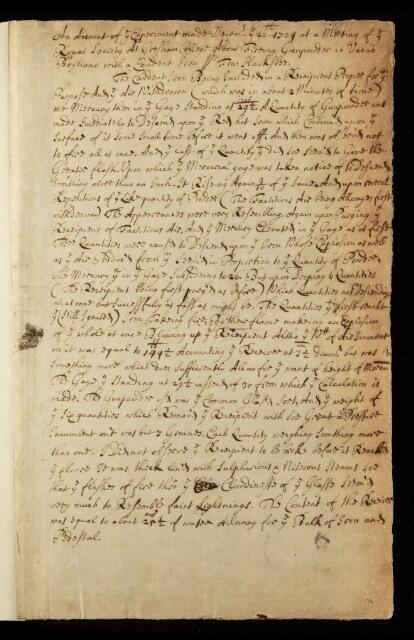 An Account of yᵉ Experiment made Decemᵇ yᵉ 20ᵗʰ 1704 at a Meeting of yᵉ
Royal Society At Gresham College About Fireing Gunpowder in Vacuo
Boyliano with a Candent Iron Fra: Hauksbee
The Candent Iron Being Included in a Recipient Proper for yᵉ
Purpose And yᵉ Air Withdrawn (which was in about 2 Minutes of time)
the Mercury then in yᵉ Gage Standing at 29½ A Quantity of Gunpowder was
made Imediately to Descend upon yᵉ Red hot Iron which Continued upon yᵉ
Surface of it Some Small time before it went off. And then was observd not
to fire all at once, And yᵉ last of yᵉ Quantity yᵗ did soe seem'd to Give the
Greater flash Upon which yᵉ Mercurial gage was taken notice of to Descend
Somthing more than an Inch. It Rising Again of yᵉ Same And upon several
Repetitions of yᵉ like quantity of Powder (The Factitious Air being Always first
withdrawn) The Appearances were very Resembling. Again upon Purging yᵉ
Recipient of Factitious Air, And yᵉ Mercury Elevated in yᵉ Gage as at first
Three Quantities were caused to Descend upon yᵉ Iron Whose Explosion as well
as yᵉ Air Produc'd from yᵐ Seem'd in Proportion to yᵉ Quantity of Powder
The Mercury yⁿ in yᵉ Gage Subsideing to 26. But upon Droping 6 Quantities
(The Recipient Being first purg'd as before) Which Quantities not Descending
all at once but Successively as fast as might be The Quantities yᵗ first caught
yᵉ (Still Ignited) Iron takeing fire, By there flame makeing an Explosion
of yᵉ whole at once Blowing up yᵉ Recipient Altho yᵉ Wᵗ of Air Incumbent
on it was equal to Accounting yᵉ Receiver at but was
Something more which does Sufficiently Allow for yᵉ want of height of Mercury
The Gage yⁿ Standing at 29½ instead of 30 from which yᵉ Calculation is
made. The Gunpowder was yᵉ Common Glaz'd Sort, And yᵉ weight of
yᵉ Six quantities which Remov'd yᵉ Recipient with soe Great a Pressure
Incumbent on't was but 7 Graines. Each Quantity weighing Somthing more
than one. I Did not observe yᵉ Recipient to be broke before it Reach'd
yᵉ floore It was thick lin'd with Sulphurious & Nitrous Steams soe
that yᵉ flashes of fire thro yᵉ Clowdinesse of yᵉ Glasse Seem'd
very much to Resemble faint Lightnings. The Content of the Receiver
was equal to about of water Allowing for yᵉ Bulk of Iron and
Pedestal.